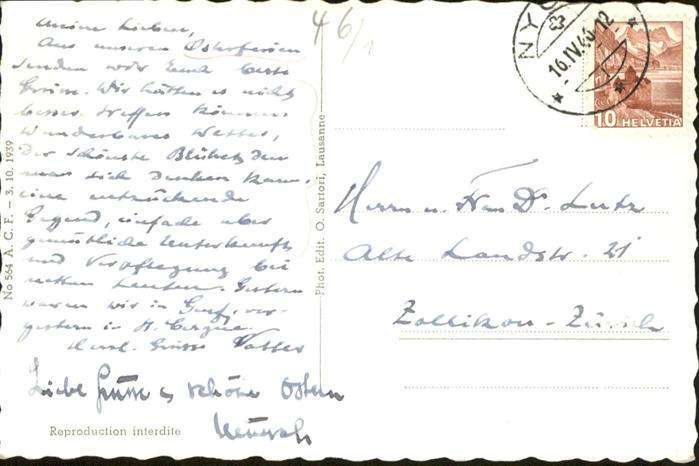 Meine Lieben,
Aus unseren Osterferien
senden wir Euch beste
Grüsse. Wir hätten es nicht
besser treffen können.
Wunderbares Wetter,
die schönste Blütezt. den
man sich denken kann,
eine entzückende
Gegend, einfache aber
gemütliche Unterkunft
und Verpflegung bei
netten Leuten. Gestern
waren wir in Genf, vor-
gestern in St. Cergue.
Herzl. Grüsse Vatter
Liebe Grüsse & schöne Ostern
46/1
NYON
16.IV.40.12
10 HELVETIA
Herrn u. Frau Dr. Lutz
Alte Landstr. 21
Zollikon-Zürich
No 564 A. C. F. - 3. 10. 1939
Phot. Edit. O. Sartori, Lausanne
Reproduction interdite